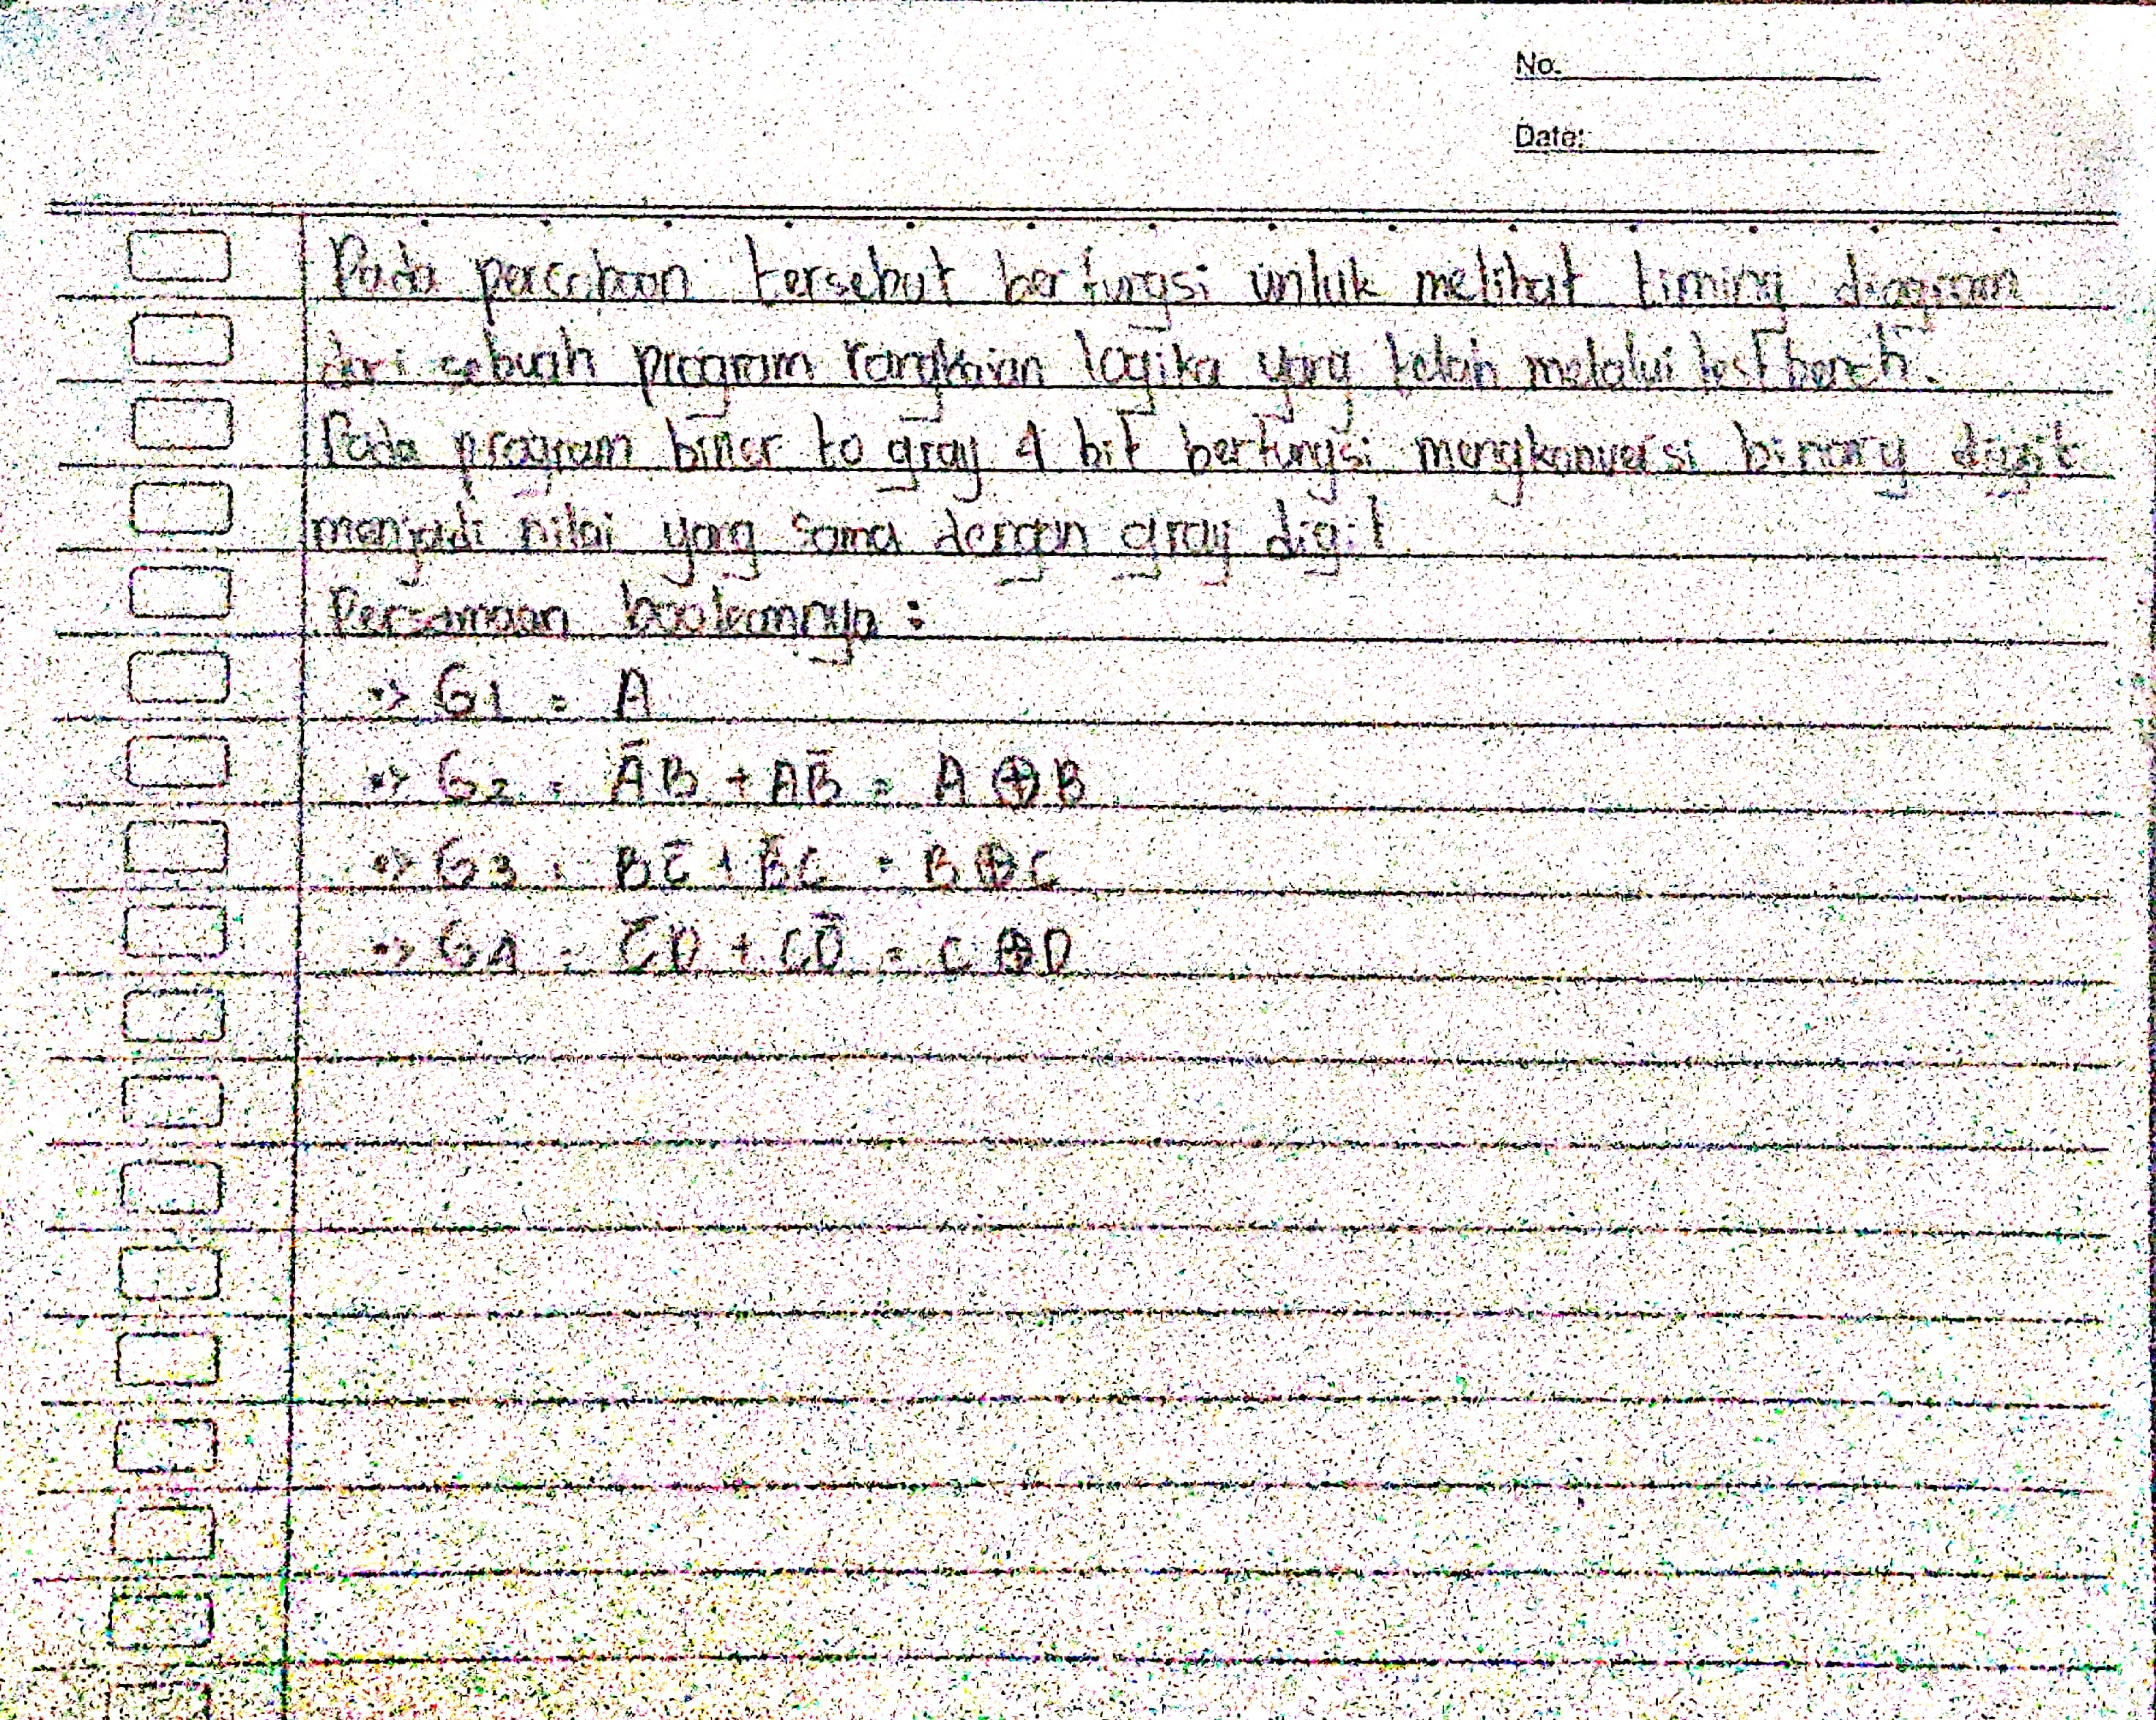 No.
Date:
Pada percobaan tersebut berfungsi untuk melihat timing diagram
dari sebuah program rangkaian logika yang telah melalui test bench.
Pada program biner to gray 4 bit berfungsi mengkonversi binary digit
menjadi nilai yang sama dengan gray digit
Persamaan booleannya :
=> G1 = A
=> G2 = A̅B + AB̅ = A ⊕ B
=> G3 = BC̅ + B̅C = B ⊕ C
=> G4 = C̅D + CD̅ = C ⊕ D